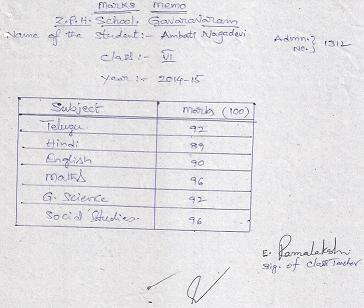 Marks Memo
Z.P.H. School, Gavaravaram
Name of the Student:- Ambati Nagadevi
Admn. No. } 1312
Class :- VI
Year :- 2014-15
Subject Marks (100)
Telugu 92
Hindi 89
English 90
Maths 96
G. Science 92
Social Studies. 96
E. Ramalakshmi
Sig. of Class Teacher